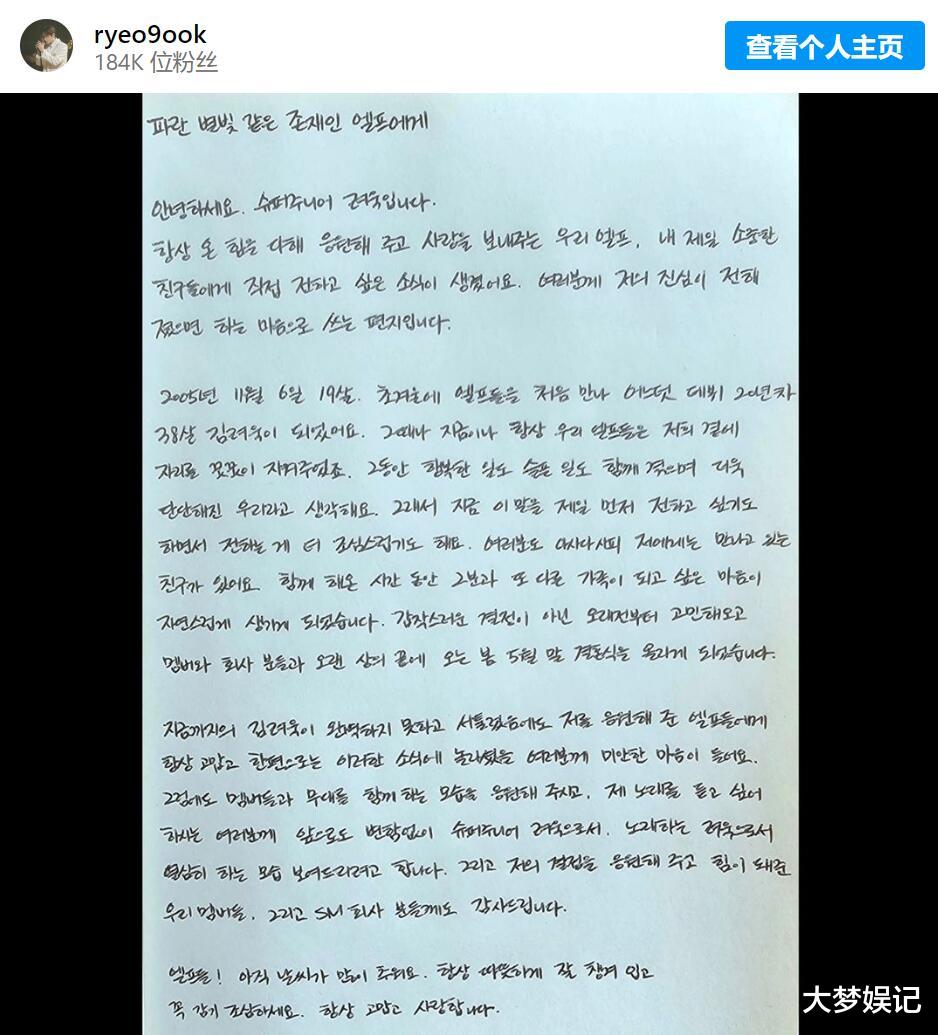 ryeo9ook
184K 位粉丝
查看个人主页
파란 별빛 같은 존재인 엘프에게
안녕하세요. 슈퍼주니어 려욱입니다.
항상 온 힘을 다해 응원해 주고 사랑을 보내주는 우리 엘프, 내 제일 소중한
친구들에게 직접 전하고 싶은 소식이 생겼어요. 여러분께 저의 진심이 전해
졌으면 하는 마음으로 쓰는 편지입니다.
2005년 11월 6일 19살. 초겨울에 엘프들을 처음 만나 어느덧 데뷔 20년차
38살 김려욱이 되었어요. 그때나 지금이나 항상 우리 엘프들은 저희 곁에
자리를 꿋꿋이 지켜주었죠. 그동안 행복한 일도 슬픈 일도 함께 겪으며 더욱
단단해진 우리라고 생각해요. 그래서 지금 이 말을 제일 먼저 전하고 싶기도
하면서 전하는 게 더 조심스럽기도 해요. 여러분도 아시다시피 저에게는 만나고 있는
친구가 있어요. 함께 해온 시간 동안 그분과 또 다른 가족이 되고 싶은 마음이
자연스럽게 생기게 되었습니다. 갑작스러운 결정이 아닌 오래전부터 고민해오고
멤버와 회사 분들과 오랜 상의 끝에 오는 봄 5월 말 결혼식을 올리게 되었습니다.
지금까지의 김려욱이 완벽하지 못하고 서툴렀음에도 저를 응원해 준 엘프들에게
항상 고맙고 한편으로는 이러한 소식에 놀라셨을 여러분께 미안한 마음이 들어요.
그럼에도 멤버들과 무대를 함께 하는 모습을 응원해 주시고, 제 노래를 듣고 싶어
하시는 여러분께 앞으로도 변함없이 슈퍼주니어 려욱으로서, 노래하는 려욱으로서
열심히 하는 모습 보여드리려고 합니다. 그리고 저의 결정을 응원해 주고 힘이 돼준
우리 멤버들, 그리고 SM 회사 분들께도 감사드립니다.
엘프들! 아직 날씨가 많이 추워요. 항상 따뜻하게 잘 챙겨 입고
꼭 감기 조심하세요. 항상 고맙고 사랑합니다.
大梦娱记